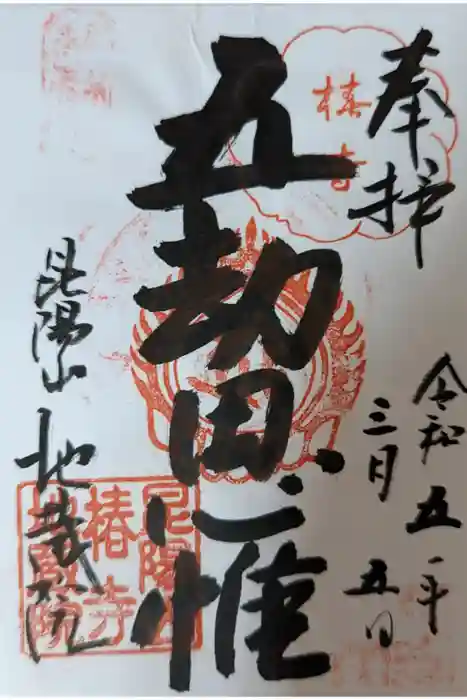 奉拝
椿寺
令和五年
三月五日
五劫思惟
昆陽山
地蔵院
昆陽山
椿寺
地蔵院